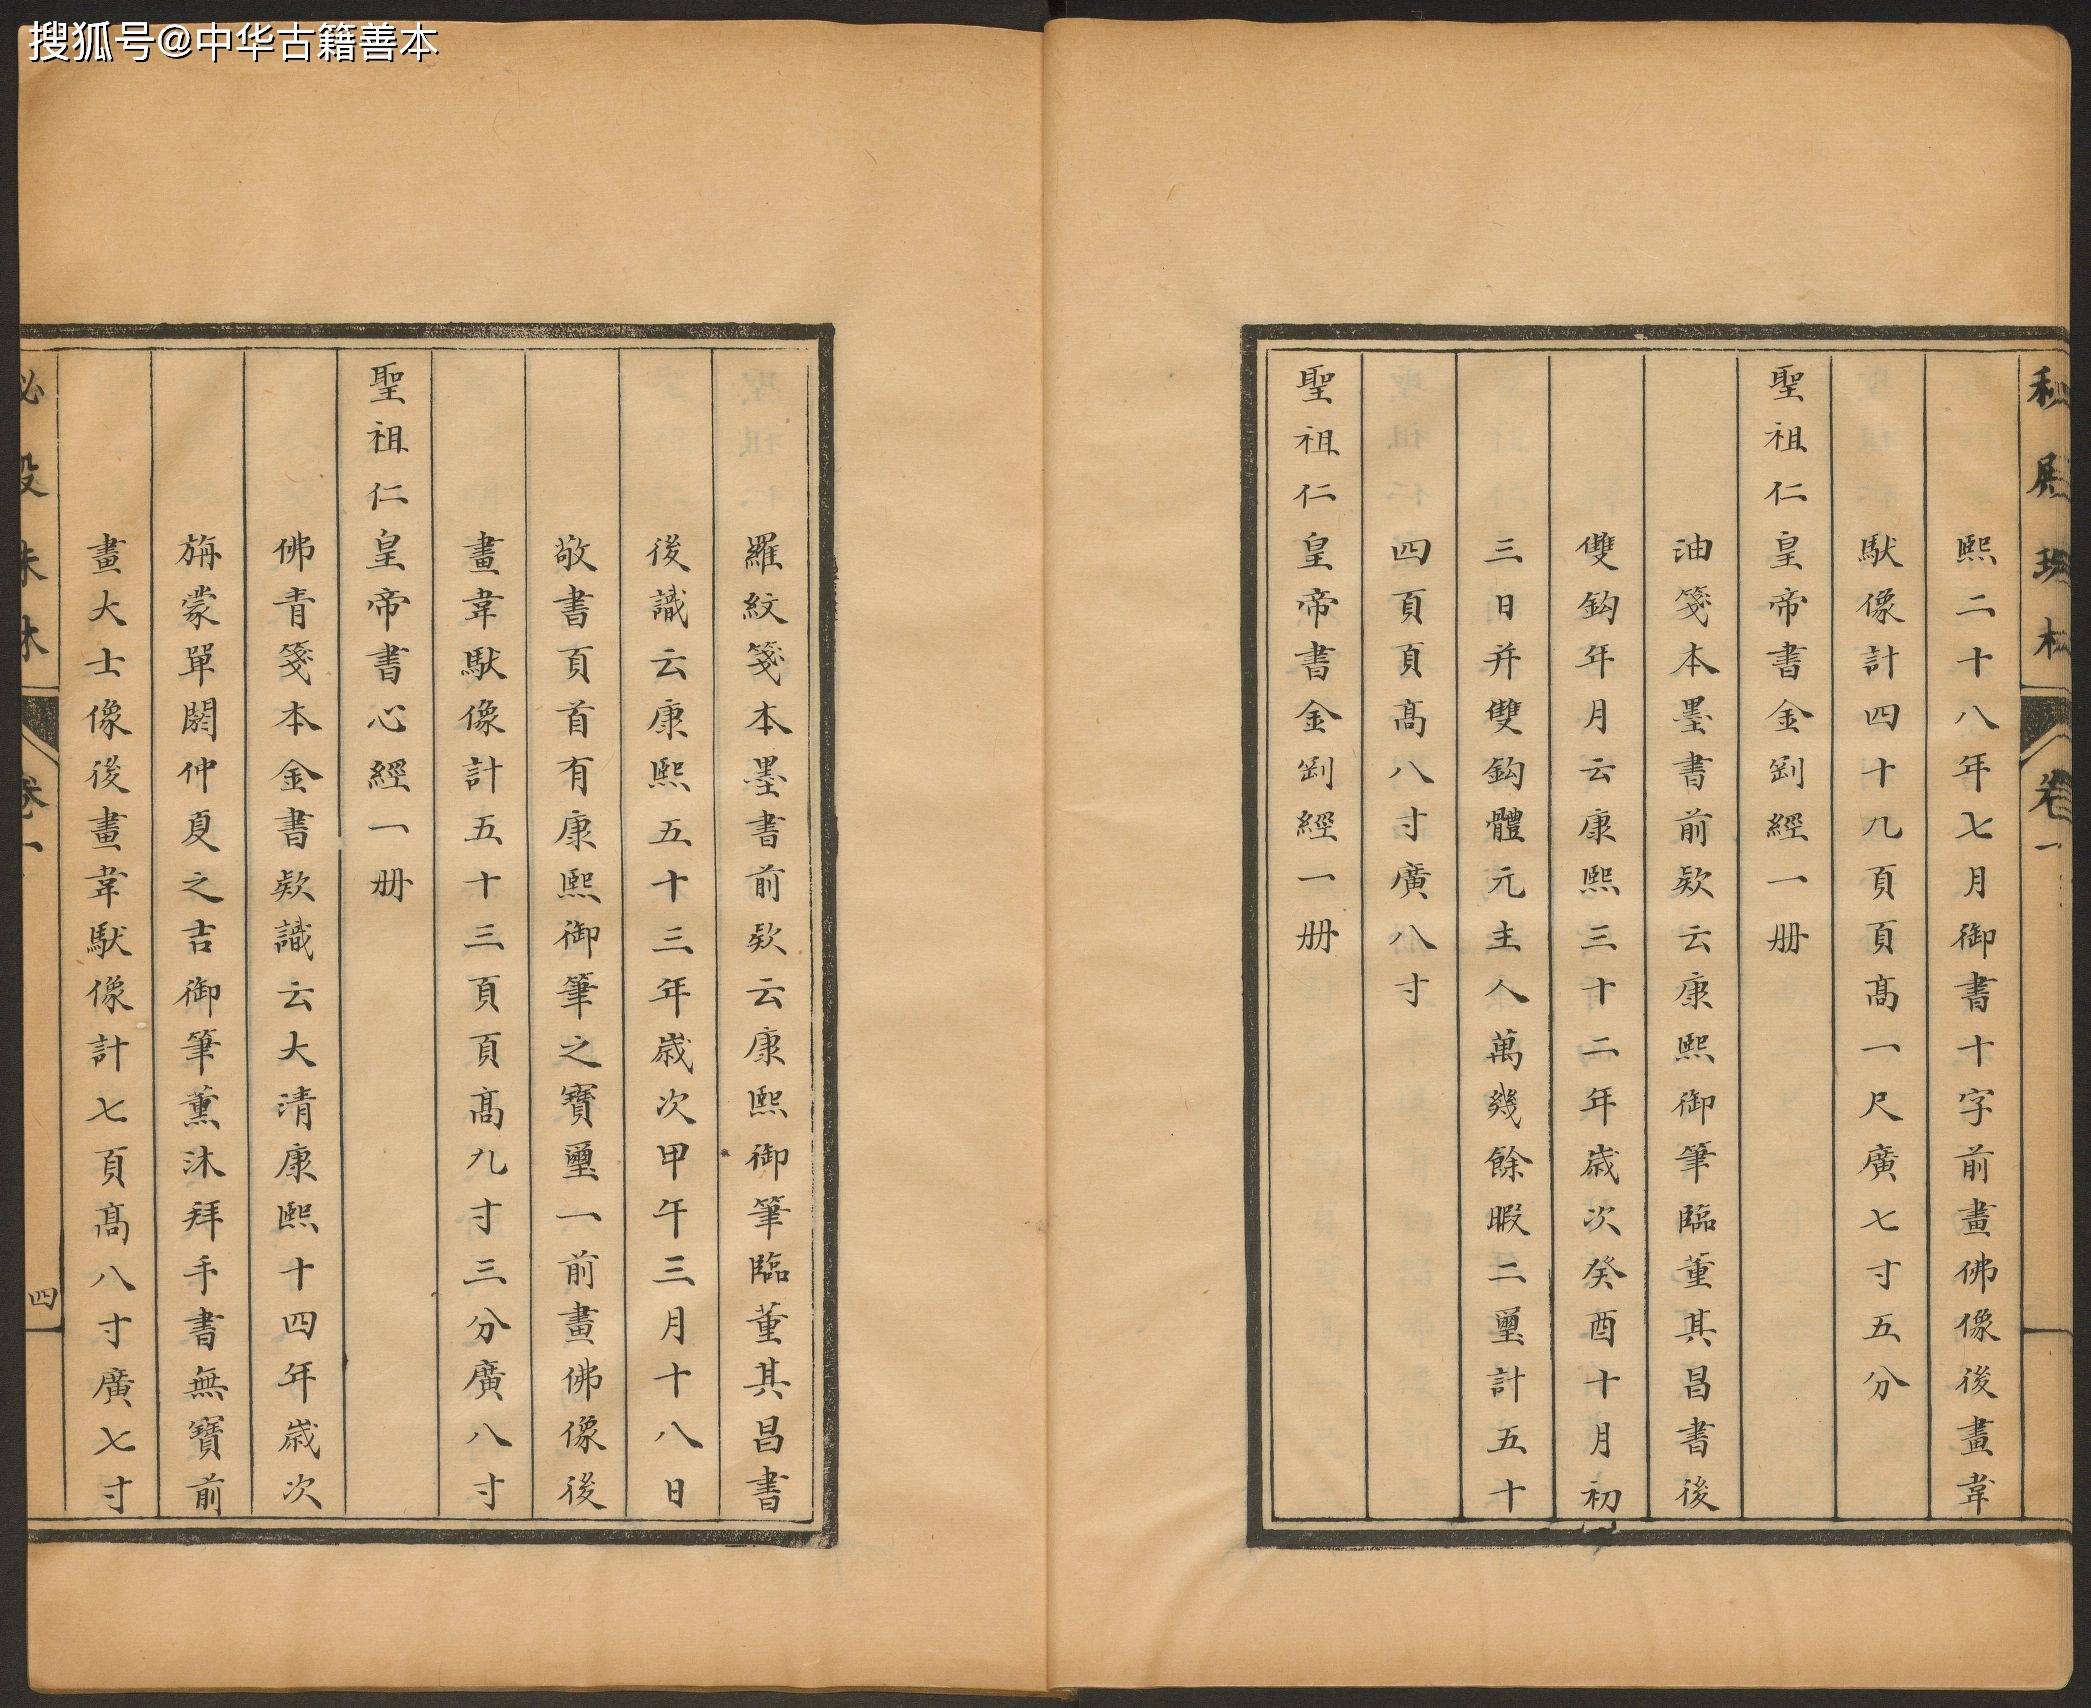 搜狐号@中华古籍善本
熙二十八年七月御書十字前畫佛像後畫韋
馱像計四十九頁頁高一尺廣七寸五分
聖祖仁皇帝書金剛經一冊
油箋本墨書前欵云康熙御筆臨董其昌書後
雙鈎年月云康熙三十二年歲次癸酉十月初
三日并雙鈎體元主人萬幾餘暇二璽計五十
四頁頁高八寸廣八寸
聖祖仁皇帝書金剛經一冊
羅紋箋本墨書前欵云康熙御筆臨董其昌書
後識云康熙五十三年歲次甲午三月十八日
敬書頁首有康熙御筆之寶璽一前畫佛像後
畫韋馱像計五十三頁頁高九寸三分廣八寸
聖祖仁皇帝書心經一冊
佛青箋本金書欵識云大清康熙十四年歲次
旃蒙單閼仲夏之吉御筆薰沐拜手書無寶前
畫大士像後畫韋馱像計七頁高八寸廣七寸
卷一
四